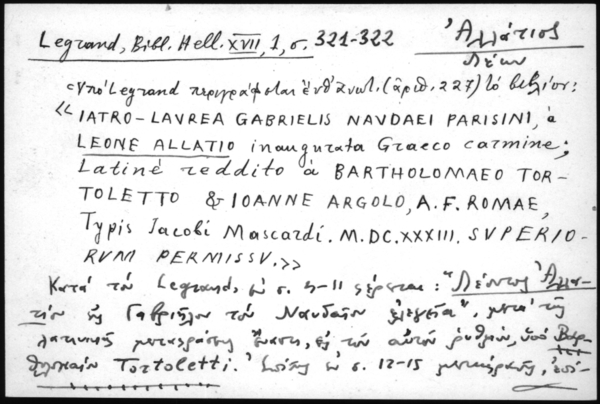 Legrand, Bibl. Hell. XVII, 1, σ. 321-322
Ἀλλάτιος
Λέων
Ὑπό Legrand περιγράφεται ἐνθ' ἀνωτ. (ἀριθ. 227) τό βιβλίον:
« IATRO-LAVREA GABRIELIS NAVDAEI PARISINI, à
LEONE ALLATIO inaugurata Graeco carmine;
Latinè reddito à BARTHOLOMAEO TOR-
TOLETTO & IOANNE ARGOLO, A. F. ROMAE,
Typis Iacobi Mascardi. M.DC.XXXIII. SVPERIO-
RVM PERMISSV.»
Κατά τόν Legrand, ἐν σ. 5-11 φέρεται: "Λέοντος Ἀλλα-
τίου εἰς Γαβριῆλον τόν Ναυδαῖον ἐλεγεῖα", μετά τῆς
λατινικῆς μεταφράσεως εἰς τόν αὐτόν ῥυθμόν, ὑπό Βαρ-
θολομαίου Tortoletti. Ἐπίσης ἐν σ. 12-15 μετάφρασις, ἐπί-